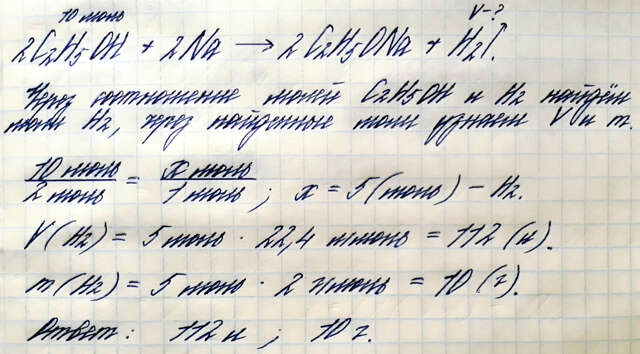 10 моль V-?
2C2H5OH + 2Na → 2C2H5ONa + H2↑.
Через соотношение молей C2H5OH и H2 найдём
моли H2, через найденные моли узнаем V и m.
10 моль / 2 моль = x моль / 1 моль ; x = 5 (моль) – H2.
V(H2) = 5 моль · 22,4 л/моль = 112 (л).
m(H2) = 5 моль · 2 г/моль = 10 (г).
Ответ: 112 л ; 10 г.